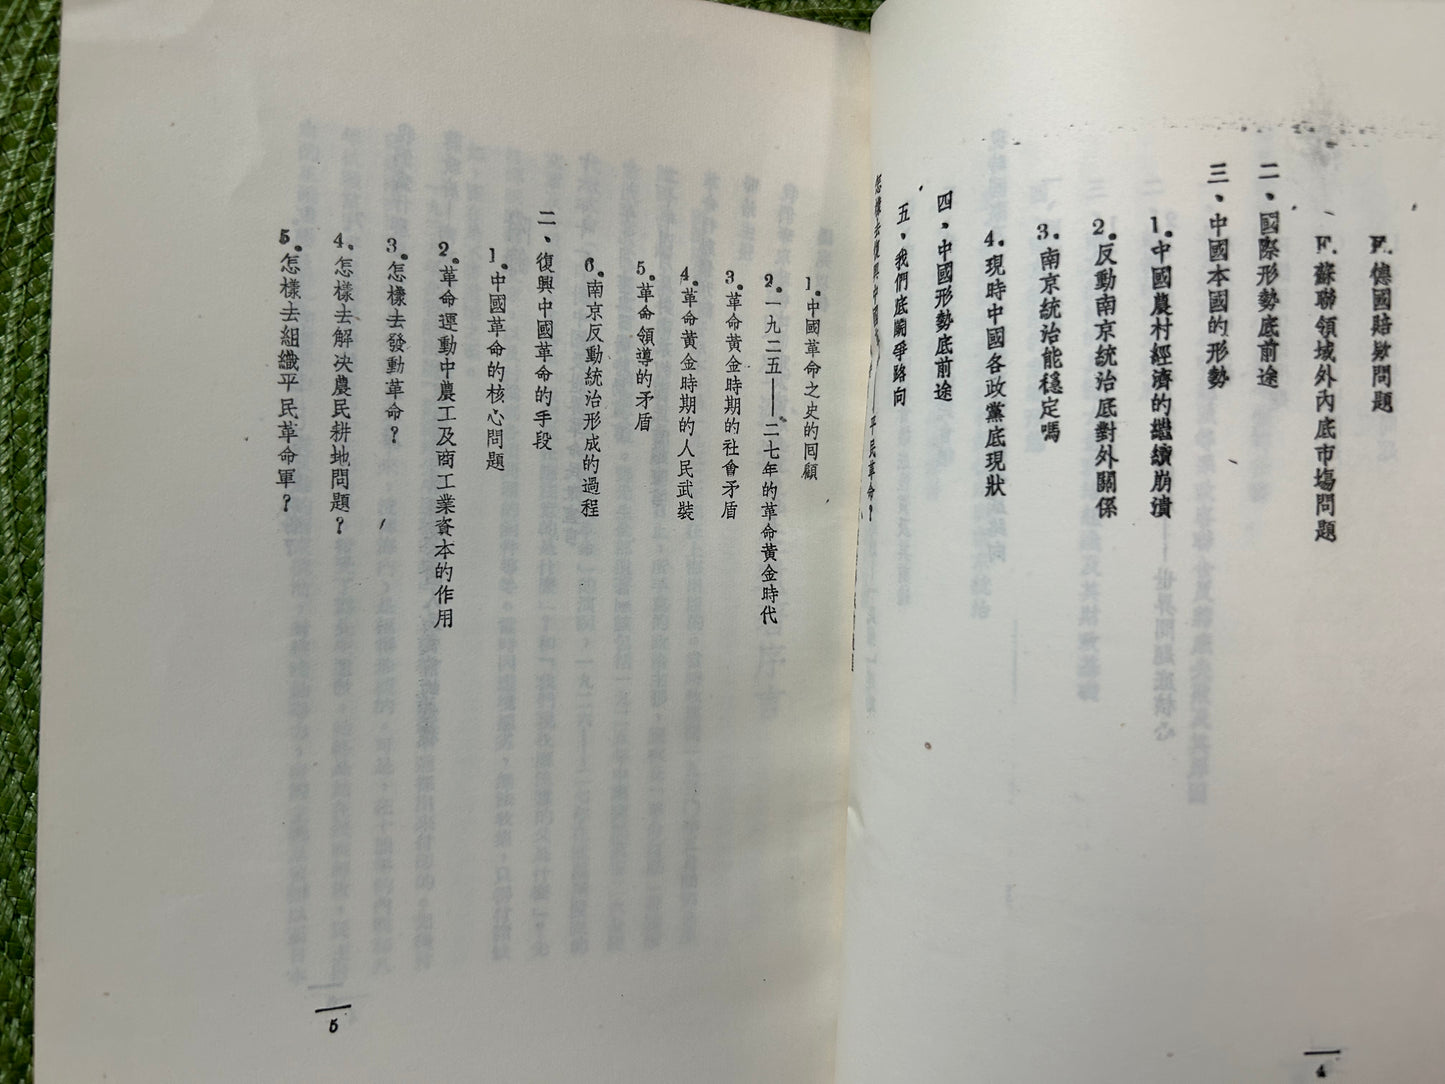 E. 德國賠欵問題
F. 蘇聯領域外內底市塲問題
二、國際形勢底前途
三、中國本國的形勢
1. 中國農村經濟的繼續崩潰
2. 反動南京統治底對外關係
3. 南京統治能穩定嗎
4. 現時中國各政黨底現狀
四、中國形勢底前途
五、我們底鬭爭路向
怎樣去復興中國革命——平民革命？
4
1. 中國革命之史的囘顧
2. 一九二五——二七年的革命黃金時代
3. 革命黃金時期的社會矛盾
4. 革命黃金時期的人民武裝
5. 革命領導的矛盾
6. 南京反動統治形成的過程
二、復興中國革命的手段
1. 中國革命的核心問題
2. 革命運動中農工及商工業資本的作用
3. 怎樣去發動革命？
4. 怎樣去解决農民耕地問題？
5. 怎樣去組織平民革命軍？
5